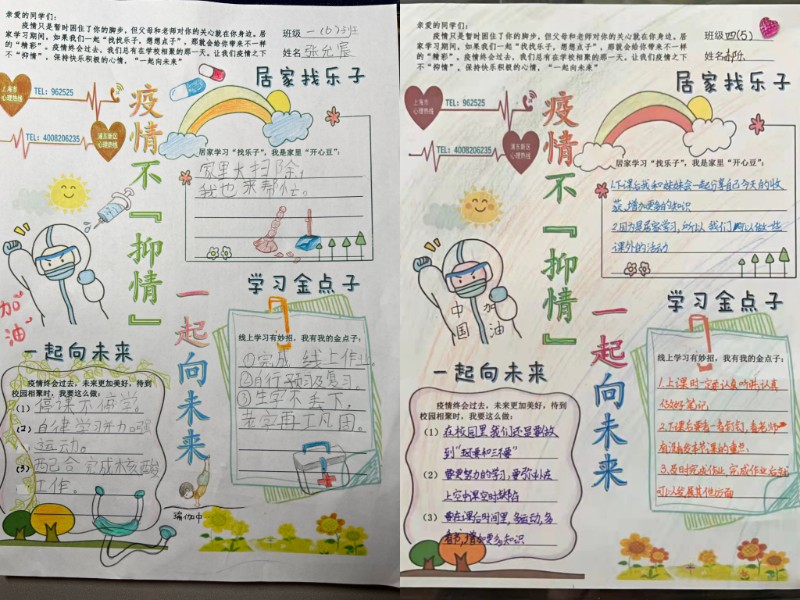 亲爱的同学们：
疫情只是暂时困住了你的脚步，但父母和老师对你的关心就在你身边。居
家学习期间，如果我们一起“找找乐子，想想点子”，那就会给你带来不一样
的“精彩”。疫情终会过去，我们总有在学校相聚的那一天。让我们疫情之下
不“抑情”，保持快乐积极的心情，“一起向未来”
班级 一(6)班
姓名 张允宸
居家找乐子
上海市
心理热线
TEL：962525
TEL：4008206235
浦东新区
心理热线
疫情不『抑情』
一起向未来
居家学习“找乐子”，我是家里“开心豆”：
家里大扫除，
我也来帮忙。
加油
学习金点子
线上学习有妙招，我有我的金点子：
①完成 线上作业。
②自行预习及复习。
③生字不丢下，
老字再巩固。
一起向未来
疫情终会过去，未来更加美好，待到
校园相聚时，我要这么做：
（1）停课不停学。
（2）自律学习并加强
运动。
（3）配合完成核酸
工作。
瑜伽中
亲爱的同学们：
疫情只是暂时困住了你的脚步，但父母和老师对你的关心就在你身边。居
家学习期间，如果我们一起“找找乐子，想想点子”，那就会给你带来不一样
的“精彩”。疫情终会过去，我们总有在学校相聚的那一天。让我们疫情之下
不“抑情”，保持快乐积极的心情，“一起向未来”
班级 四(5)
姓名
居家找乐子
上海市
心理热线
TEL：962525
TEL：4008206235
浦东新区
心理热线
疫情不『抑情』
一起向未来
居家学习“找乐子”，我是家里“开心豆”：
1.下课后我和妹妹会一起分享自己今天的收
获，增加更多的知识
2.因为是居家学习，所以我们可以做一些
课外的活动
中国加油
学习金点子
线上学习有妙招，我有我的金点子：
1.上课时一定要认真听讲，认真
做好笔记；
2.下课后要看一看书，看老师
有没有本节课的重点；
3.及时完成作业，完成作业后就
可以发展其他方面
一起向未来
疫情终会过去，未来更加美好，待到
校园相聚时，我要这么做：
（1）在校园里我们还需要做
到“要和三不要”
（2）要更努力的学习，要弥补在
上空中课堂时
（3）要在课后时间里，多运动，多
看书，增加更多知识